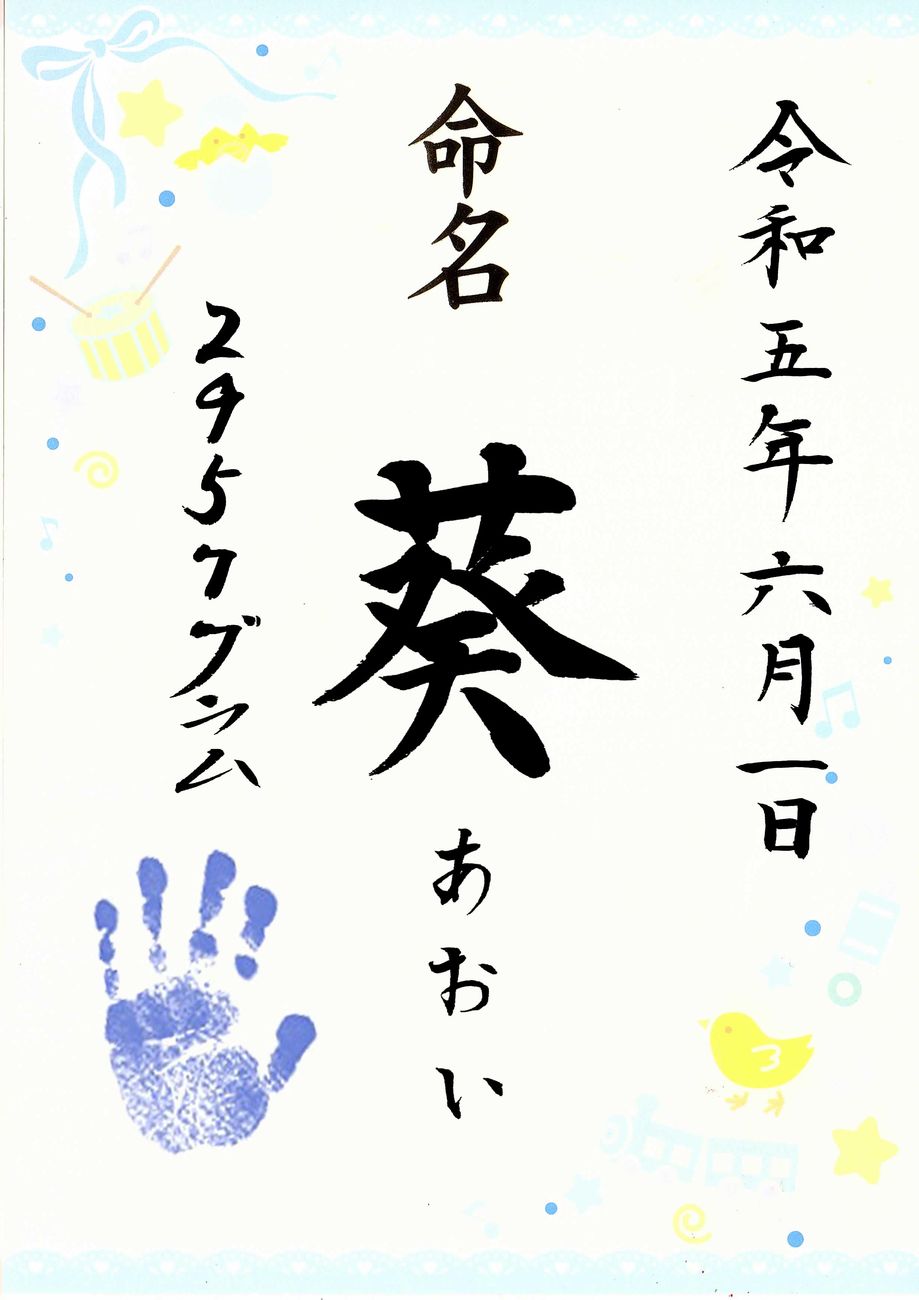 令和五年六月一日
命名 葵 あおい
2957グラム